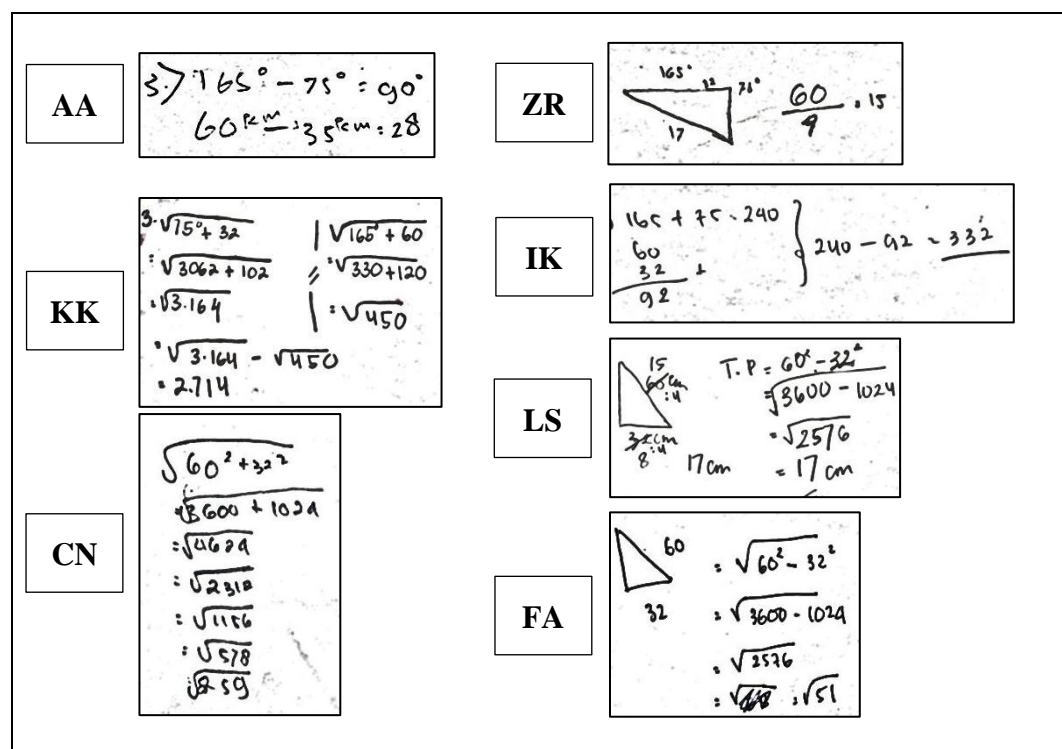 AA
3.) 165° - 75° = 90°
60 km - 35 km = 28
KK
3. √75° + 32
= √3062 + 102
= √3.164
= √3.164 - √450
= 2.714
√165° + 60
= √330 + 120
= √450
CN
√60² + 32²
= √3600 + 1024
= √4624
= √2312
= √1156
= √578
√259
ZR
165°
12
75°
17
60/9 = 15
IK
165 + 75 - 240
60
32 +
92
240 - 92 = 332
LS
15
60 cm
:4
32 cm
8 :4
17 cm
T.P = 60² - 32²
= √3600 - 1024
= √2576
= 17 cm
FA
60
32
= √60² - 32²
= √3600 - 1024
= √2576
= √51